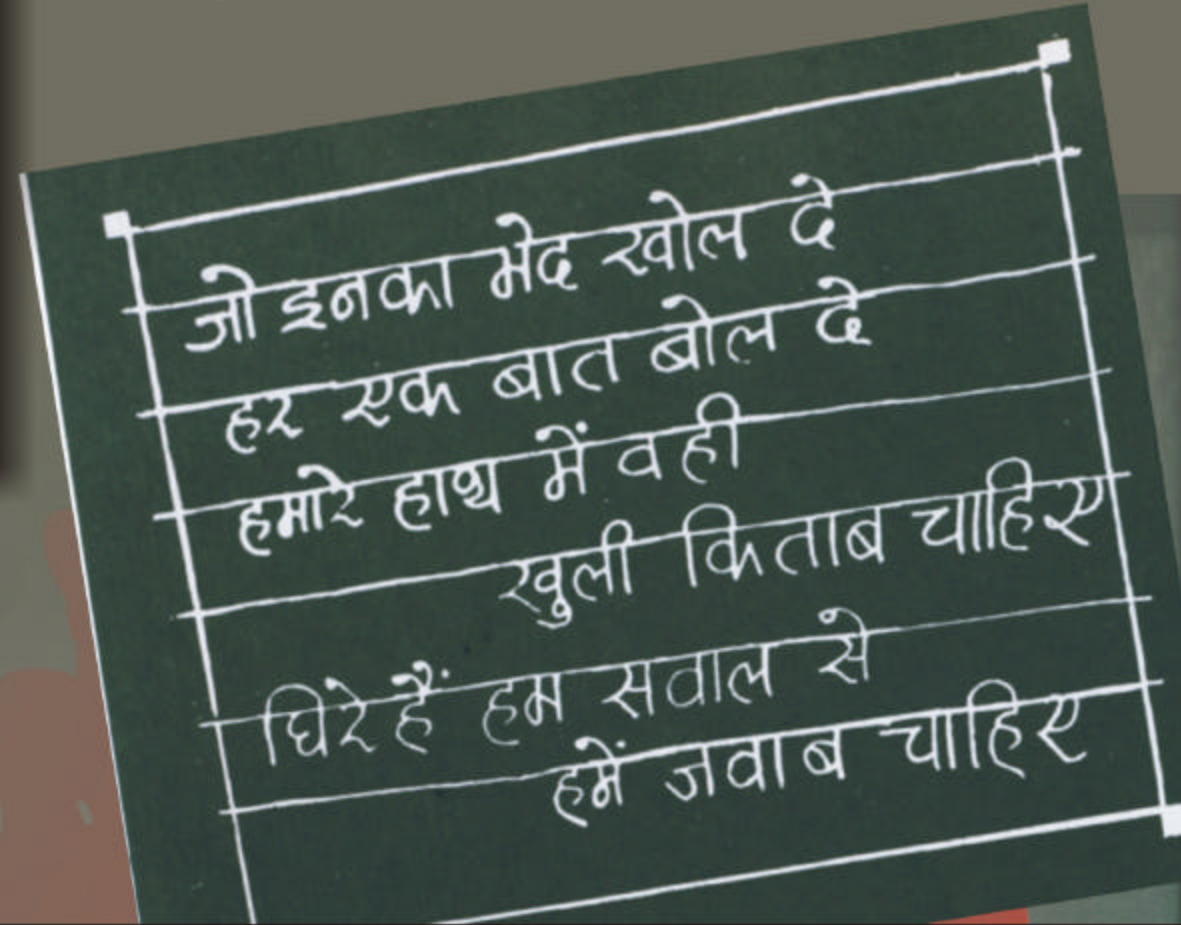 जो इनका भेद खोल दे
हर एक बात बोल दे
हमारे हाथ में वही
खुली किताब चाहिए
घिरे हैं हम सवाल से
हमें जवाब चाहिए